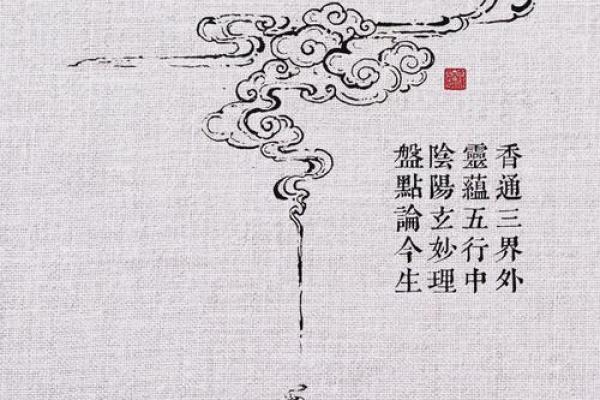 香通三界外
靈蘊五行中
陰陽玄妙理
盤點論今生